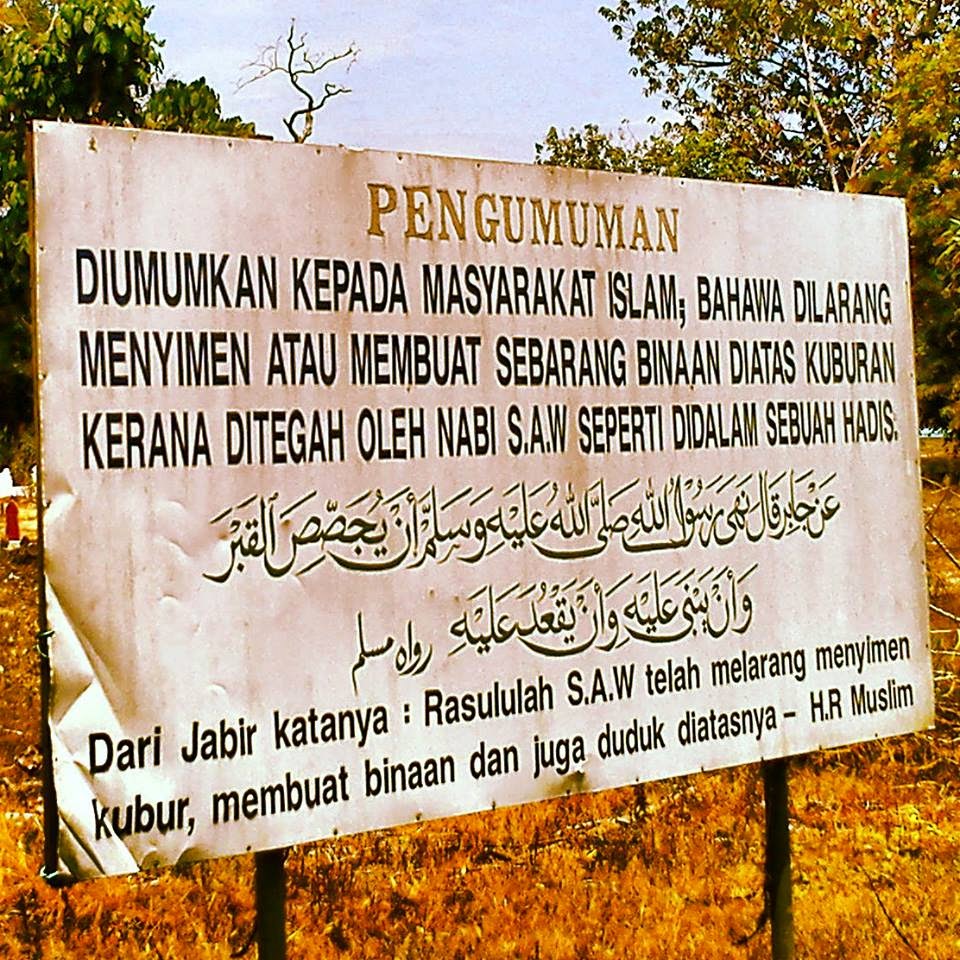 PENGUMUMAN
DIUMUMKAN KEPADA MASYARAKAT ISLAM; BAHAWA DILARANG
MENYIMEN ATAU MEMBUAT SEBARANG BINAAN DIATAS KUBURAN
KERANA DITEGAH OLEH NABI S.A.W SEPERTI DIDALAM SEBUAH HADIS:
عَنْ جَابِرٍ قَالَ نَهَى رَسُوْلُ اللهِ صَلَّى اللهُ عَلَيْهِ وَسَلَّمَ أَنْ يُجَصَّصَ الْقَبْرَ
وَأَنْ يَبْنَى عَلَيْهِ وَأَنْ يَقْعُدَ عَلَيْهِ رواه مسلم
Dari Jabir katanya : Rasululah S.A.W telah melarang menyimen
kubur, membuat binaan dan juga duduk diatasnya – H.R Muslim